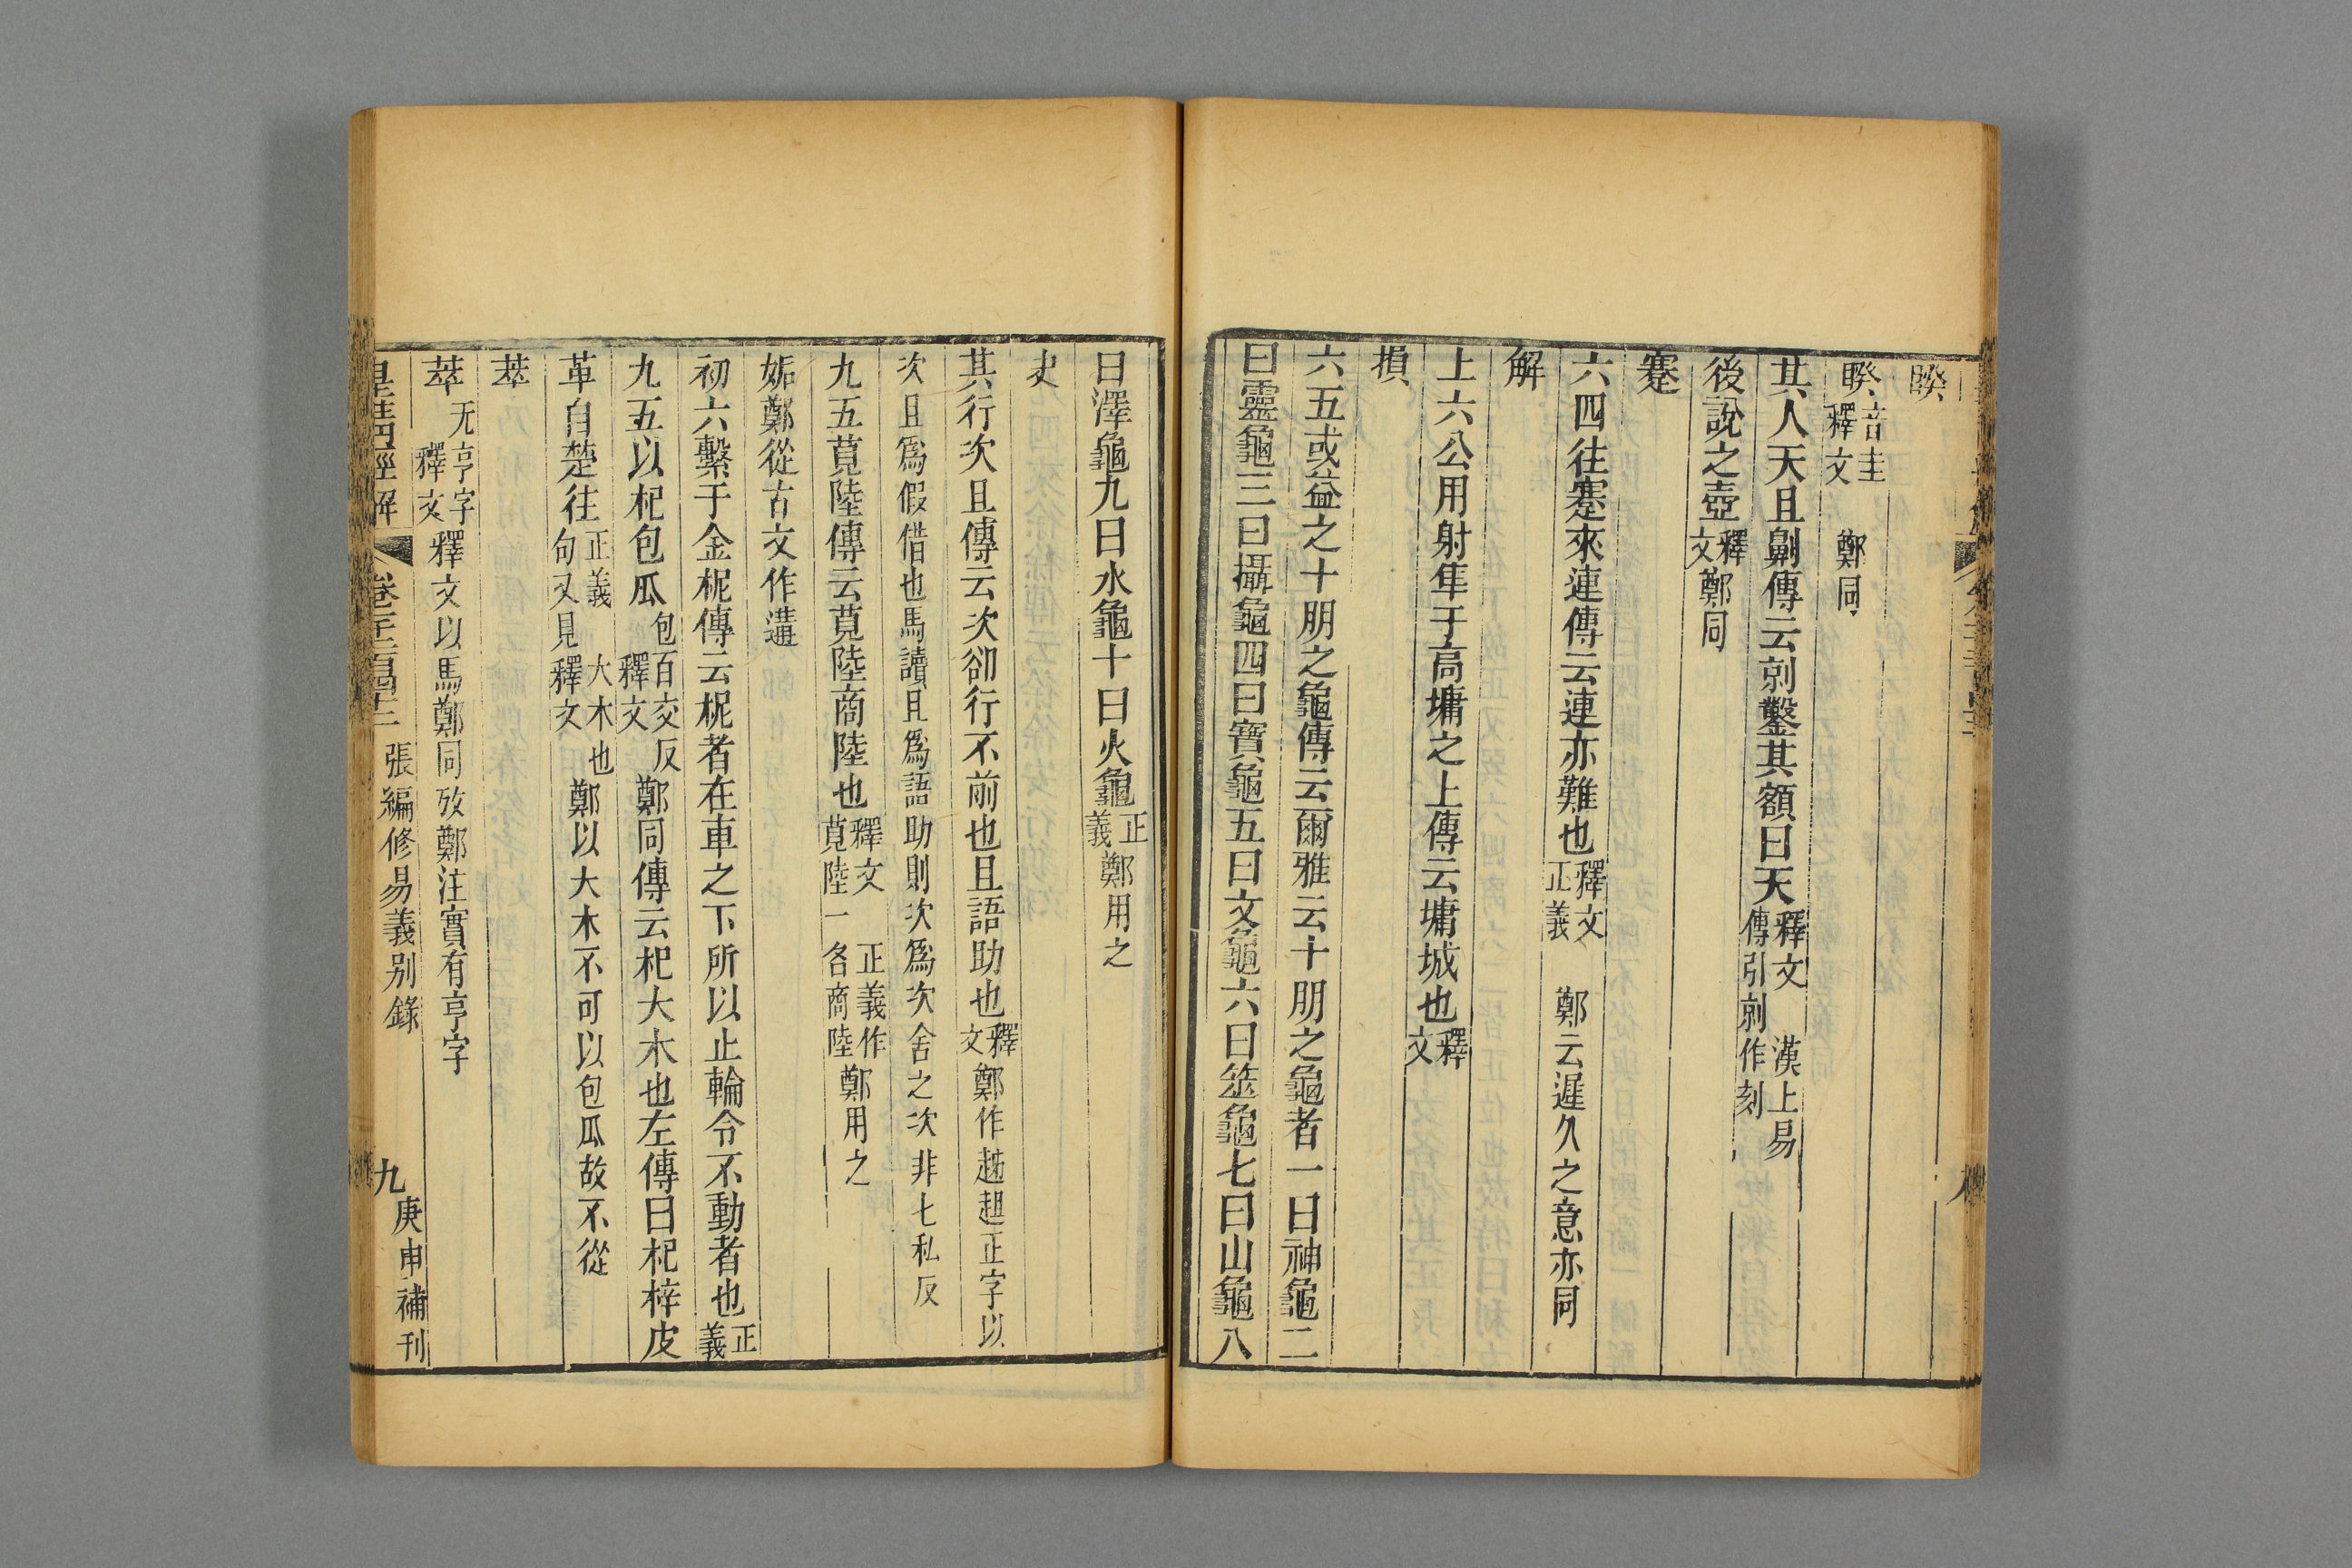 睽
睽音圭釋文 鄭同
其人天且劓傳云剠鑿其額曰天釋文 漢上易傳引剠作刻
後說之壺釋文鄭同
蹇
六四往蹇來連傳云連亦難也釋文正義 鄭云遲久之意亦同
解
上六公用射隼于高墉之上傳云墉城也釋文
損
六五或益之十朋之龜傳云爾雅云十朋之龜者一曰神龜二
曰靈龜三曰攝龜四曰寶龜五曰文龜六曰筮龜七曰山龜八
曰澤龜九曰水龜十曰火龜正義鄭用之
夬
其行次且傳云次卻行不前也且語助也釋文鄭作趀趄正字以
次且爲假借也馬讀且爲語助則次爲次舍之次非七私反
九五莧陸傳云莧陸商陸也釋文 正義作莧陸一各商陸鄭用之
姤鄭從古文作遘
初六繫于金柅傳云柅者在車之下所以止輪令不動者也正義
九五以杞包瓜包百交反釋文鄭同傳云杞大木也左傳曰杞梓皮
革自楚往正義 大木也句又見釋文鄭以大木不可以包瓜故不從
萃
萃无亨字釋文釋文以馬鄭同攷鄭注實有亨字
皇淸經解 卷千二百四十二 張編修易義別錄 九 庚申補刊